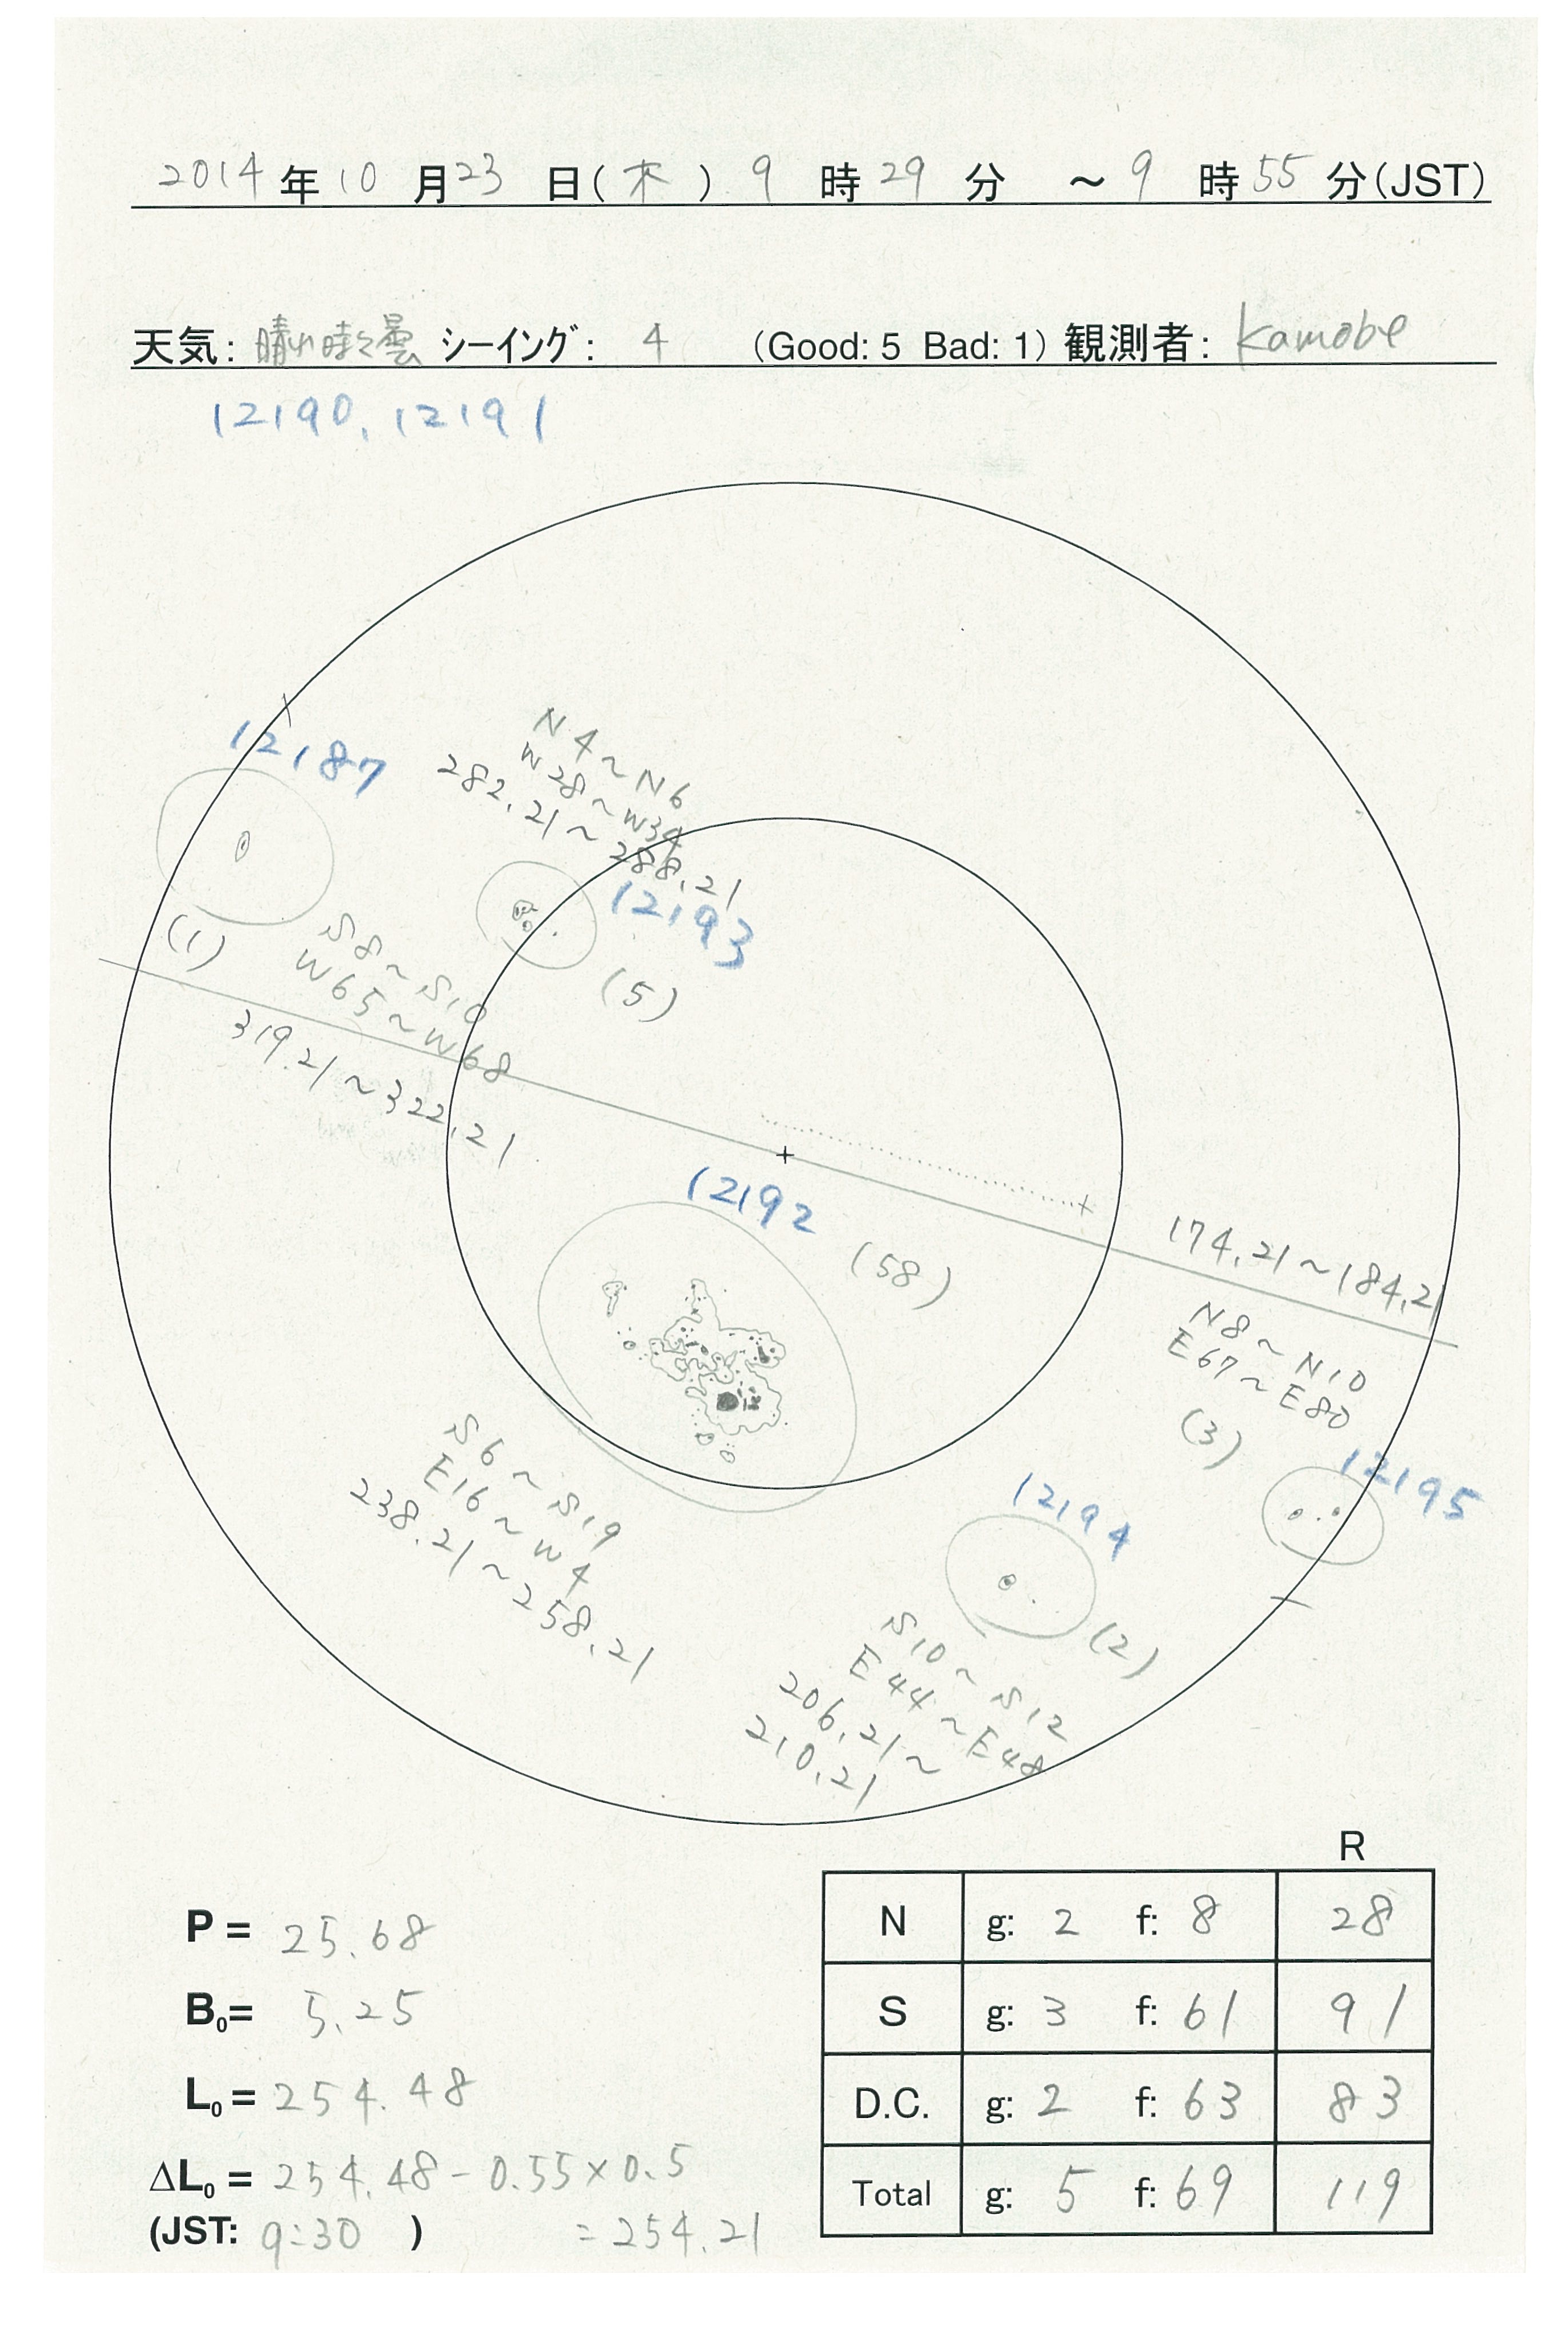 2014年10月23日(木) 9時29分 ～9時55分(JST)
天気: 晴れ時々曇 シーイング: 4 (Good: 5 Bad: 1) 観測者: Kamobe
12190, 12191
12187
N4～N6
W28～W34
282.21～288.21
12193
(5)
(1)
S8～S10
W65～W68
319.21～322.21
12192
(58)
174.21～184.21
N8～N10
E67～E80
(3)
12195
S6～S19
E16～W4
238.21～258.21
12194
(2)
S10～S12
E44～E48
206.21～
210.21
R
N g: 2 f: 8 28
S g: 3 f: 61 91
D.C. g: 2 f: 63 83
Total g: 5 f: 69 119
P = 25.68
B0= 5.25
L0 = 254.48
ΔL0 = 254.48 - 0.55×0.5
(JST: 9:30 ) = 254.21